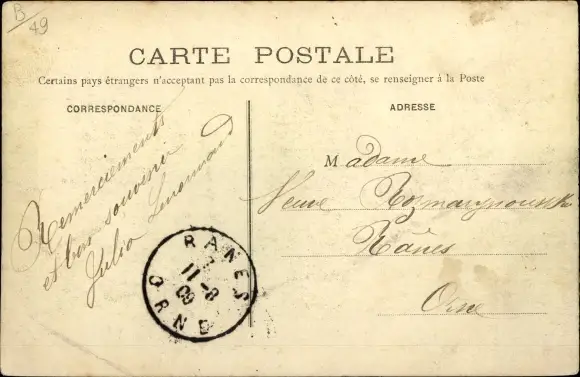 B/49
CARTE POSTALE
Certains pays étrangers n'acceptant pas la correspondance de ce côté, se renseigner à la Poste
CORRESPONDANCE
ADRESSE
Remerciements
et bon souvenir
Julia Lenormand
Madame
Veuve
Rânes
Orne
RANES
11-8
09
ORNE